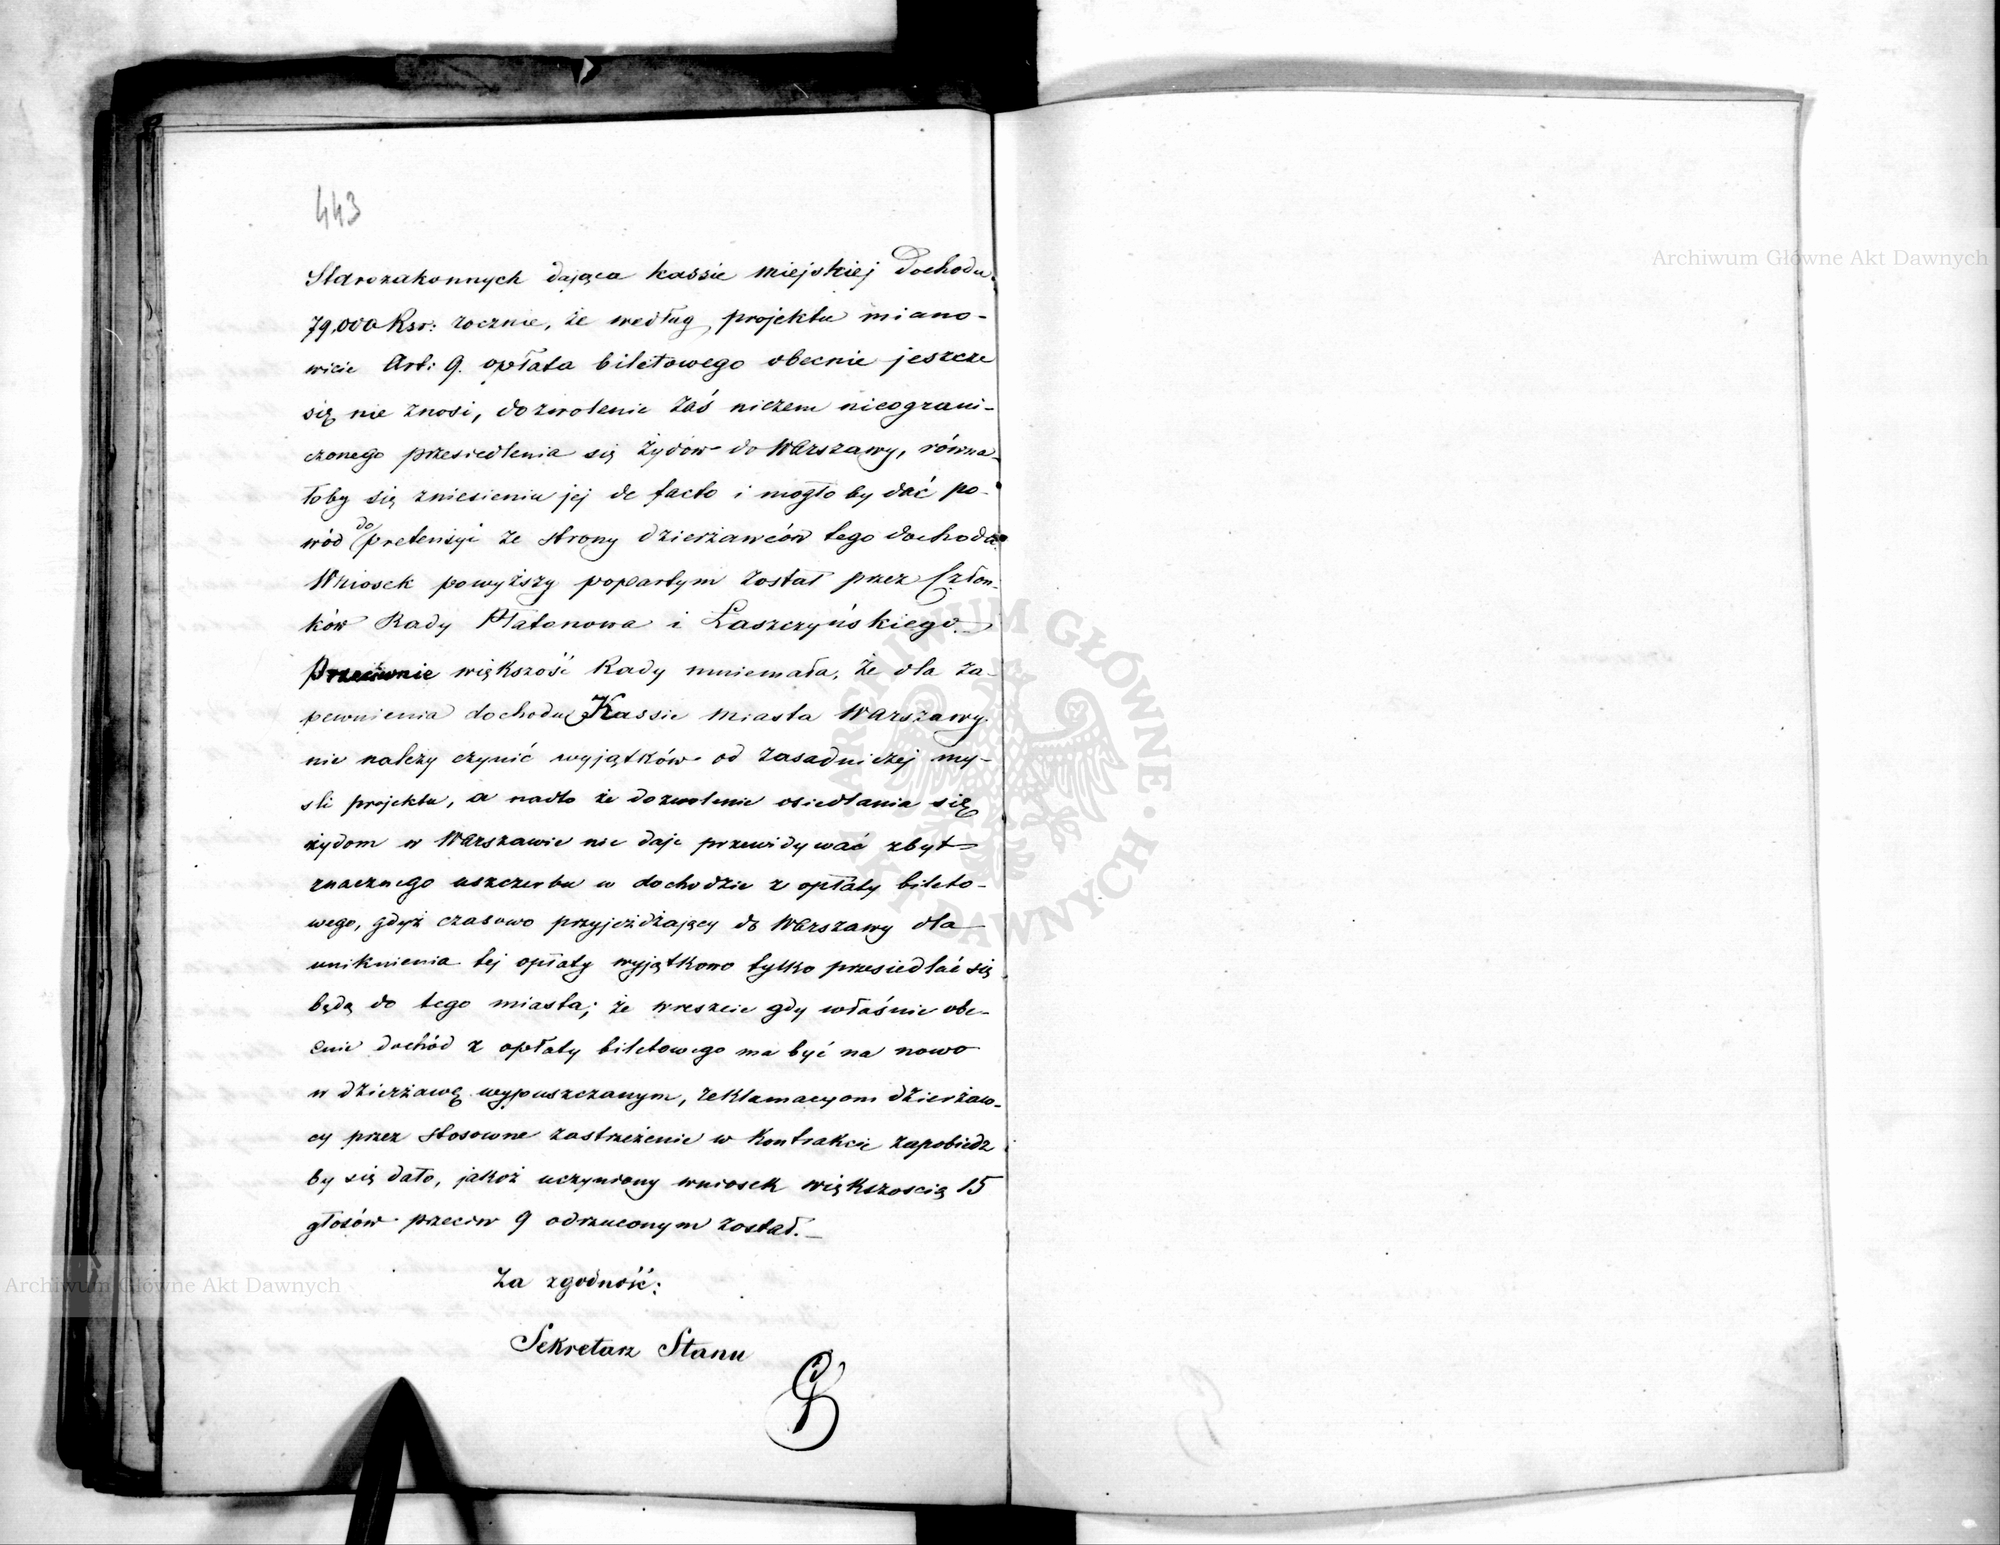 443
Starozakonnych dająca kassie miejskiej dochodu
79,000 Rsr: rocznie, że według projektu miano-
wicie Art: 9. opłata biletowego obecnie jeszcze
się nie znosi, dozwolenie zaś niczem nieograni-
czonego przesiedlenia się żydów do Warszawy, równa-
łoby się zniesieniu jej de facto i mogło by dać po-
wód do pretensyi ze strony dzierżawców tego dochodu.
Wniosek powyższy popartym został przez Człon-
ków Rady Płatonowa i Łaszczyńskiego.
Przeciwnie większość Rady mniemała, że dla za-
pewnienia dochodu Kassie miasta Warszawy
nie należy czynić wyjątków od zasadniczej my-
śli projektu, a nadto że dozwolenie osiedlania się
żydom w Warszawie nie daje przewidywać zbyt
znacznego uszczerbu w dochodzie z opłaty bileto-
wego, gdyż czasowo przyjeżdżający do Warszawy dla
uniknienia tej opłaty wyjątkowo tylko przesiedlać się
będą do tego miasta; że wreszcie gdy właśnie obe-
cnie dochód z opłaty biletowego ma być na nowo
w dzierżawę wypuszczanym, reklamacyom dzierżaw-
cy przez stosowne zastrzeżenie w Kontrakcie zapobiedz
by się dało, jakoż uczyniony wniosek większością 15
głosów przeciw 9 odrzuconym został.—
Za zgodność:
Sekretarz Stanu
Archiwum Główne Akt Dawnych
Archiwum Główne Akt Dawnych
ARCHIWUM GŁÓWNE · AKT DAWNYCH ·